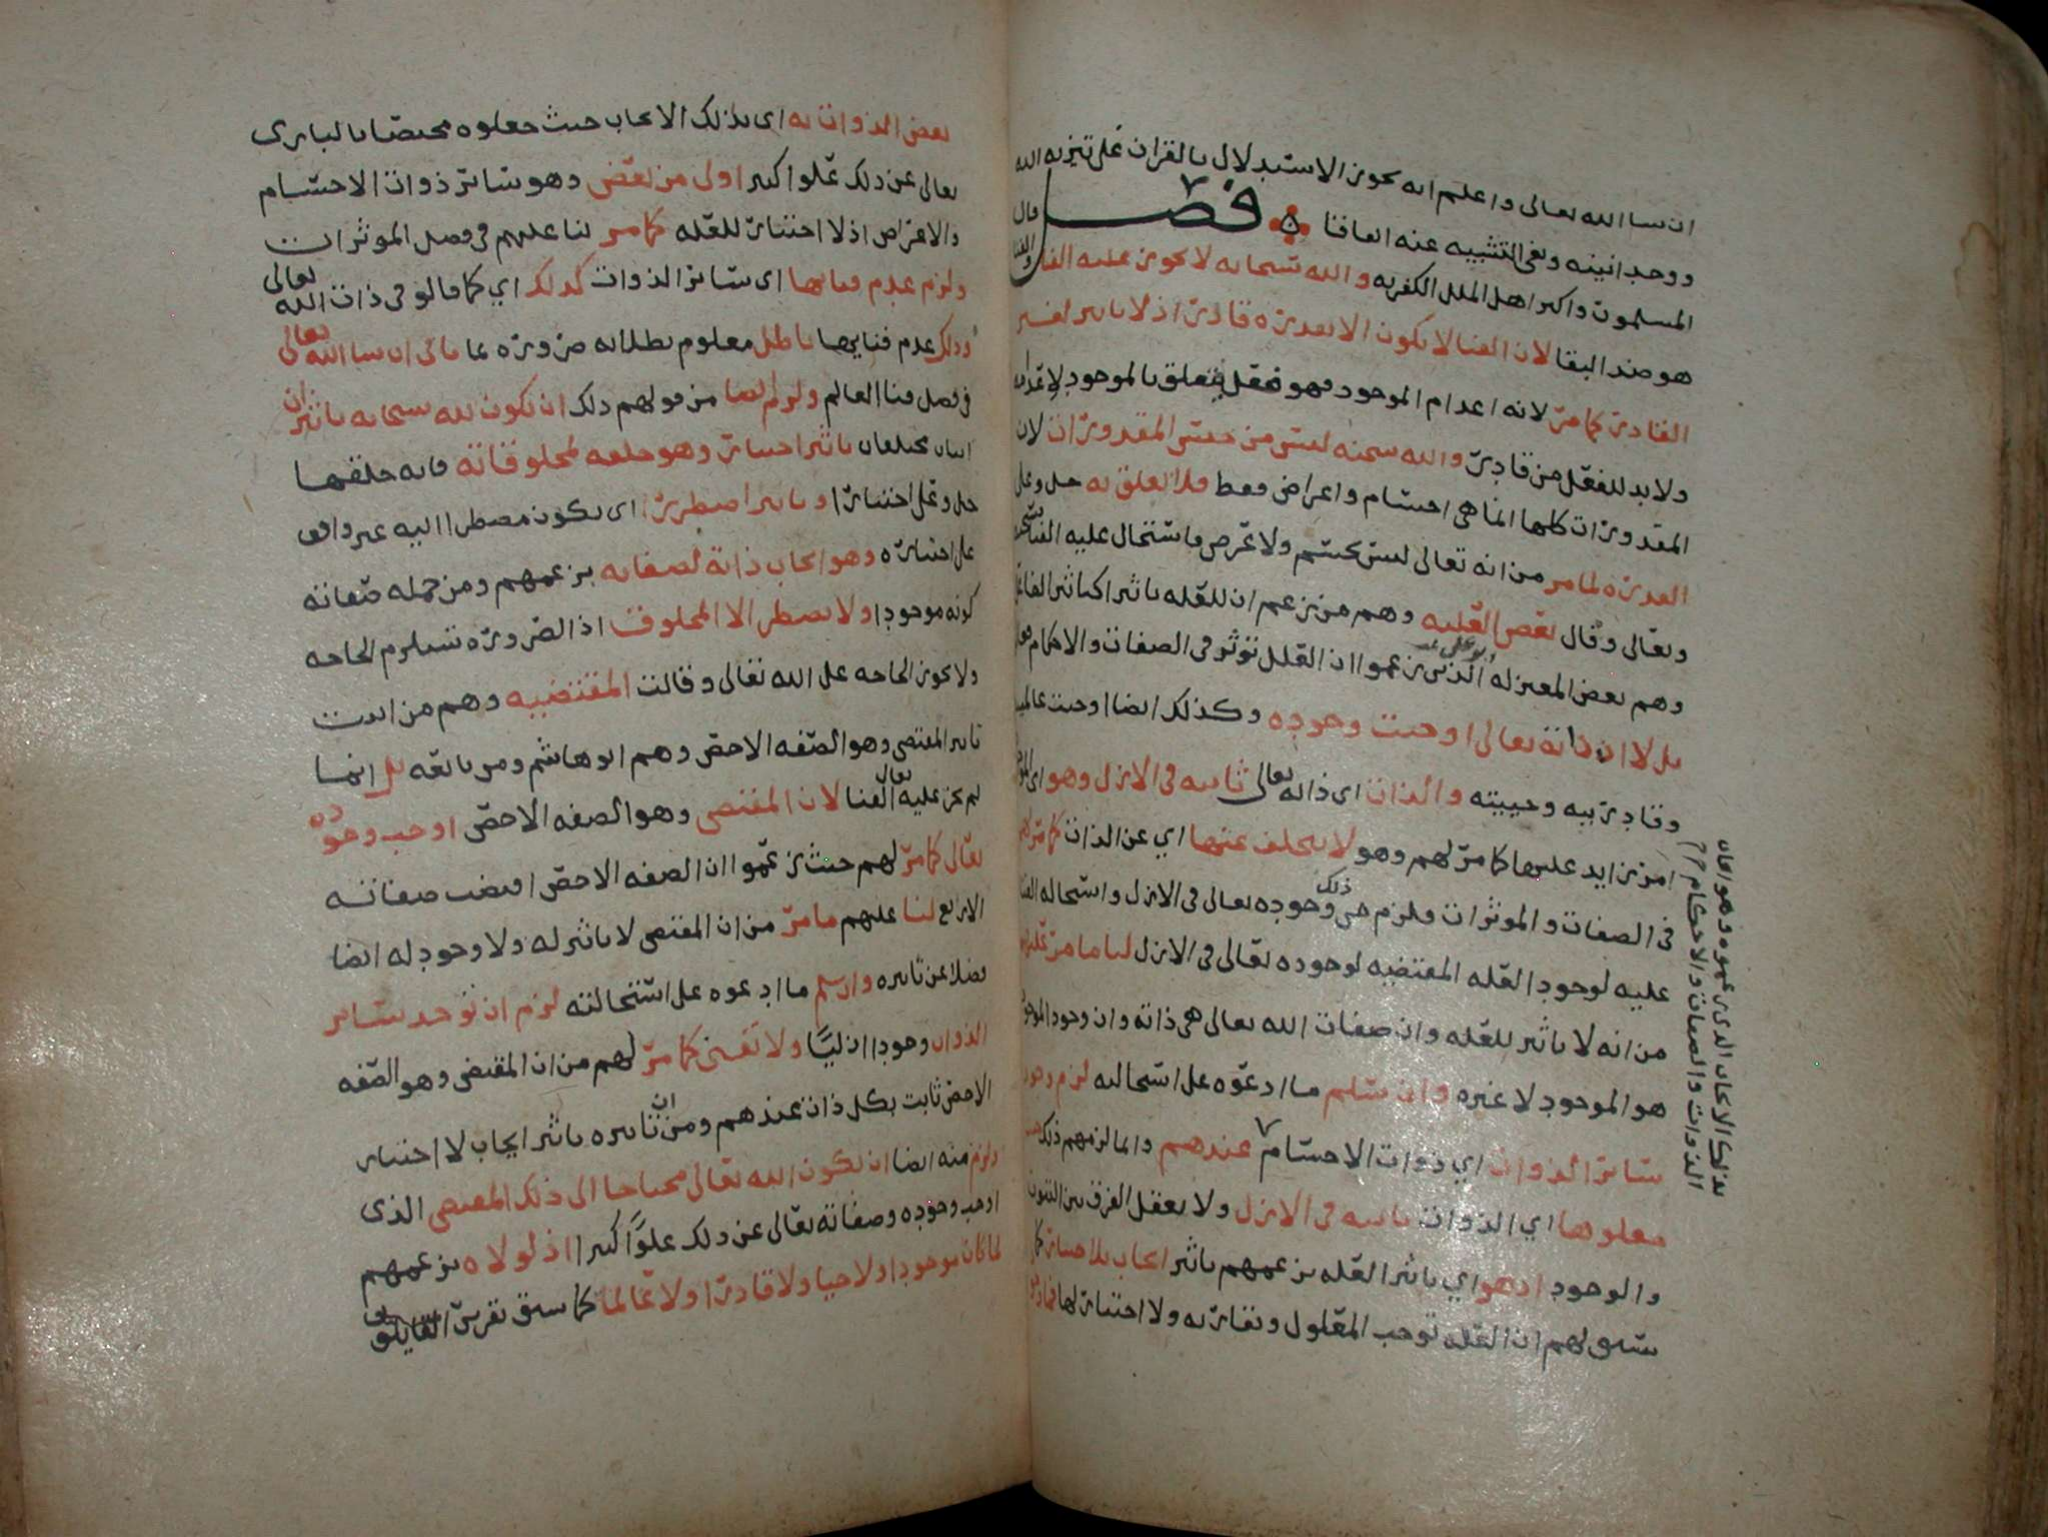 ان سا الله تعالى واعلم انه يجوز الاستدلال بالقران على تنزيه الله
ووحدانيته ونفي التشبيه عنه اتفاقا فصل قال
المسلمون واكثر اهل الملل الكفريه والله سبحانه لا يجوز عليه الفنا والفنا
هو ضد البقا لان الفنا لا يكون الا بقدرة قادر اذ لا تاثير لغير
القادر كما مر لانه اعدام الموجود فهو فعل متعلق بالموجود لاعدامه
ولا بد للفعل من قادر والله سبحنه ليس من جنس المقدورات لان
المقدورات كلها انما هي اجسام واعراض فقط فلا تعلق به جل وعلى
القدرة لما مر من انه تعالى ليس بجسم ولا عرض فاستحال عليه الفنا سبحنه
وتعالى وقال بعض العليه وهم من يزعم ان للعله تاثيرا كتاثير الفاعل
وهم بعض المعتزله ابو علي الذين زعموا ان العلل توثر في الصفات والاحكام
بل لان ذاته تعالى اوجبت وجوده وكذلك ايضا اوجبت عالميته
وقادريته وحييته والذات اي ذاته تعالى ثابته في الازل وهو اي
امر زايد عليها كما مر لهم وهو لا يتخلف عنها اي عن الذات كما مر لهم
في الصفات والموثرات فلزم من ذلك وجوده تعالى في الازل واستحاله الفنا
عليه لوجود العله المقتضيه لوجوده تعالى في الازل لنا ما مر عليهم
من انه لا تاثير للعله وان صفات الله تعالى هي ذاته وان وجود الموجود
هو الموجود لا غيره وان سلم ما ادعوه على استحالته لزم وجود
ساير الذوات اي ذوات الاجسام عندهم وانما لزمهم ذلك حيث
جعلوها اي الذوات ثابته في الازل ولا يعقل الفرق بين الثبوت
والوجود اذ هو اي تاثير العله بزعمهم تاثير ايجاب بلا اختيار كما
سبق لهم ان العله توجب المعلول وتقارنه ولا اختيار لها
بذلك الايجاب الذي زعموه وهو ايجاب
الذوات والصفات والاحكام
بعض الذوات به اي بذلك الايجاب حيث جعلوه مختصا بالباري
تعالى عن ذلك علوا كبيرا اولى من بعض وهو ساير ذوات الاجسام
والاعراض اذ لا اختيار للعله كما مر لنا عليهم في فصل الموثرات
ولزم عدم فنايها اي ساير الذوات كذلك اي كما قالو في ذات الله تعالى
وذلك عدم فنايها باطل معلوم بطلانه ضرورة بما ياتي ان سا الله تعالى
في فصل فنا العالم ولزم ايضا من قولهم ذلك ان يكون لله سبحانه تاثيران
اثنان مختلفان تاثير اختيار وهو خلقه لمخلوقاته فانه خلقها
جل وعلى اختيارا وتاثير اضطرار اي يكون مضطرا اليه غير واقف
على اختياره وهو ايجاب ذاته لصفاته بزعمهم ومن جمله صفاته
كونه موجودا ولا يضطر الا المخلوق اذ الضرورة تستلزم الحاجه
ولا يجوز الحاجه على الله تعالى وقالت المقتضيه وهم من اثبت
تاثير المقتضي وهو الصفه الاخص وهم ابو هاشم ومن تابعه بل انما
لم يجز عليه تعالى الفنا لان المقتضي وهو الصفه الاخص اوجب وجوده
تعالى كما مر لهم حيث زعموا ان الصفه الاخص اقتضت صفاته
الاربع لنا عليهم ما مر من ان المقتضي لا تاثير له ولا وجود له ايضا
فضلا عن تاثيره وان سلم ما ادعوه على استحالته لزم ان توجد ساير
الذوات وجودا ازليا ولا تفنى كما مر لهم من ان المقتضي وهو الصفه
الاخص ثابت بكل ذات عندهم ومن ان تاثيره تاثير ايجاب لا اختيار
ولزم منه ايضا ان يكون الله تعالى محتاجا الى ذلك المقتضي الذي
اوجب وجوده وصفاته تعالى عن ذلك علوا كبيرا اذ لولاه بزعمهم
لما كان موجودا ولا حيا ولا قادرا ولا عالما كما سبق تقريره